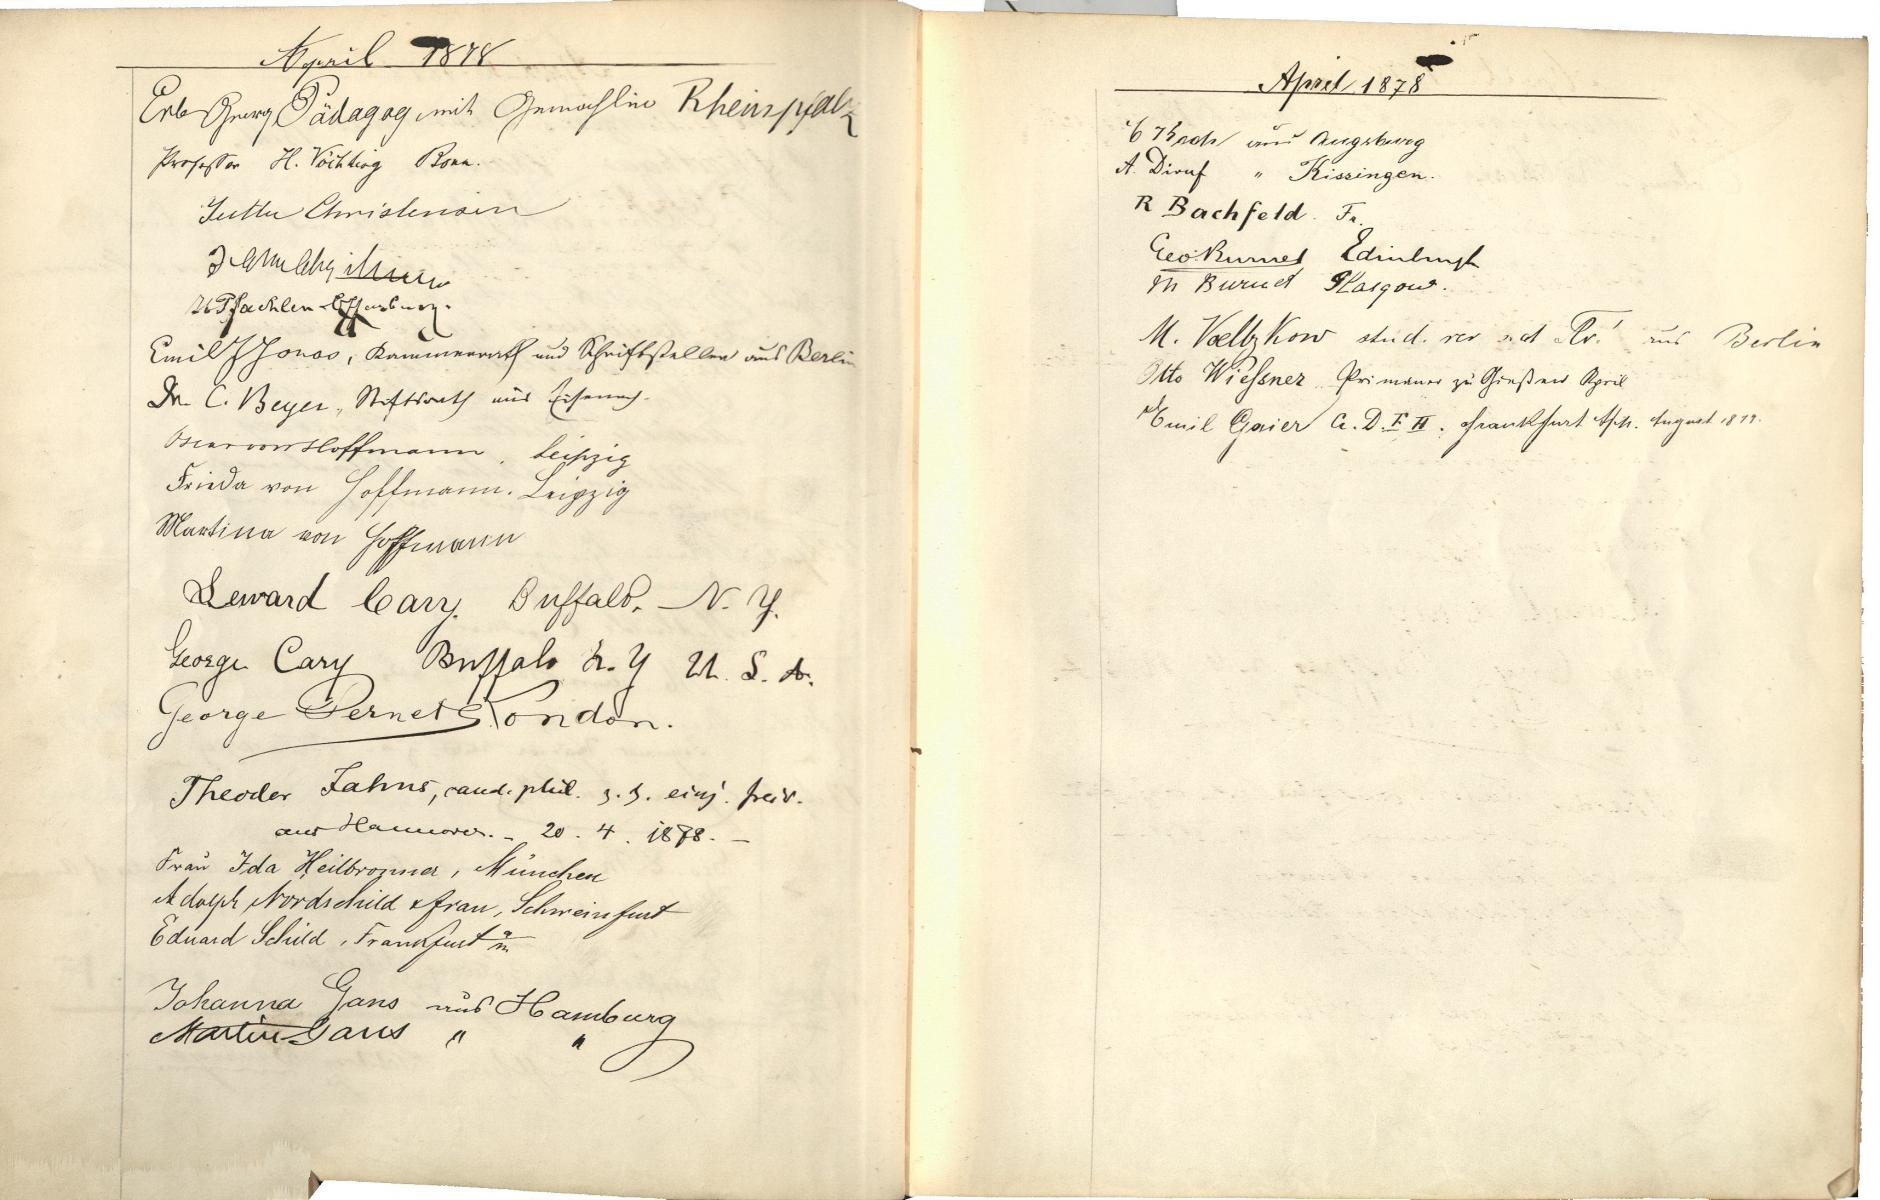 April 1878
Erb Georg Pädagog mit Gemahlin Rheinpfalz
Professor H. Vöchting Bonn.
Jutta Christensen
Emil J Jonas, Kammerrath und Schriftsteller aus Berlin
Dr. C. Beyer, Stiftsrath aus Eisenach.
Oscar von Hoffmann, Leipzig
Frieda von Hoffmann. Leipzig
Martina von Hoffmann
Seward Cary. Buffalo. N. Y.
George Cary Buffalo N. Y U. S. A.
George Pernet London.
Theodor Jahns, cand. phil. z. Z. einj. freiw.
aus Hannover. - 20. 4. 1878. -
Frau Ida Heilbronner, München
Adolph Nordschild & frau, Schweinfurt
Eduard Schild, Frankfurt a/m
Johanna Gans aus Hamburg
Martin Gans " "
April 1878
aus Augsburg
A. Diruf " Kissingen.
R Bachfeld Fr.
Geo Burnet Edinburgh
M Burnet Glasgow.
M. Voeltzkow stud. rer nat aus Berlin
Otto Wiessner Primaner zu Giessen April
Emil Gaier C. D. F. II. Frankfurt a/M. August 1877.